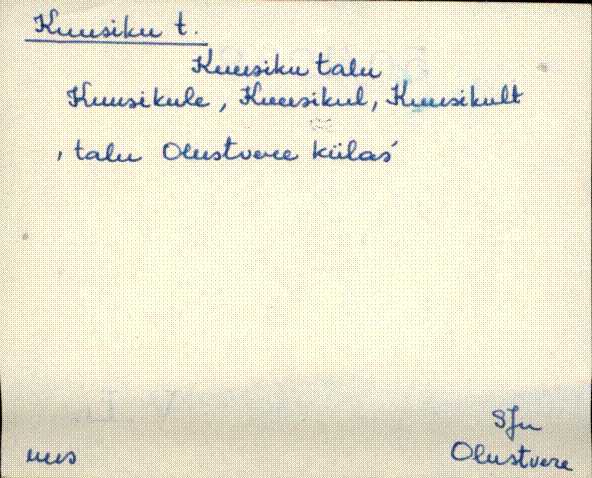 Kuusiku t.
Kuusiku talu
Kuusikule, Kuusikul, Kuusikult
, talu Olustvere külas
SJn
uus
Olustvere